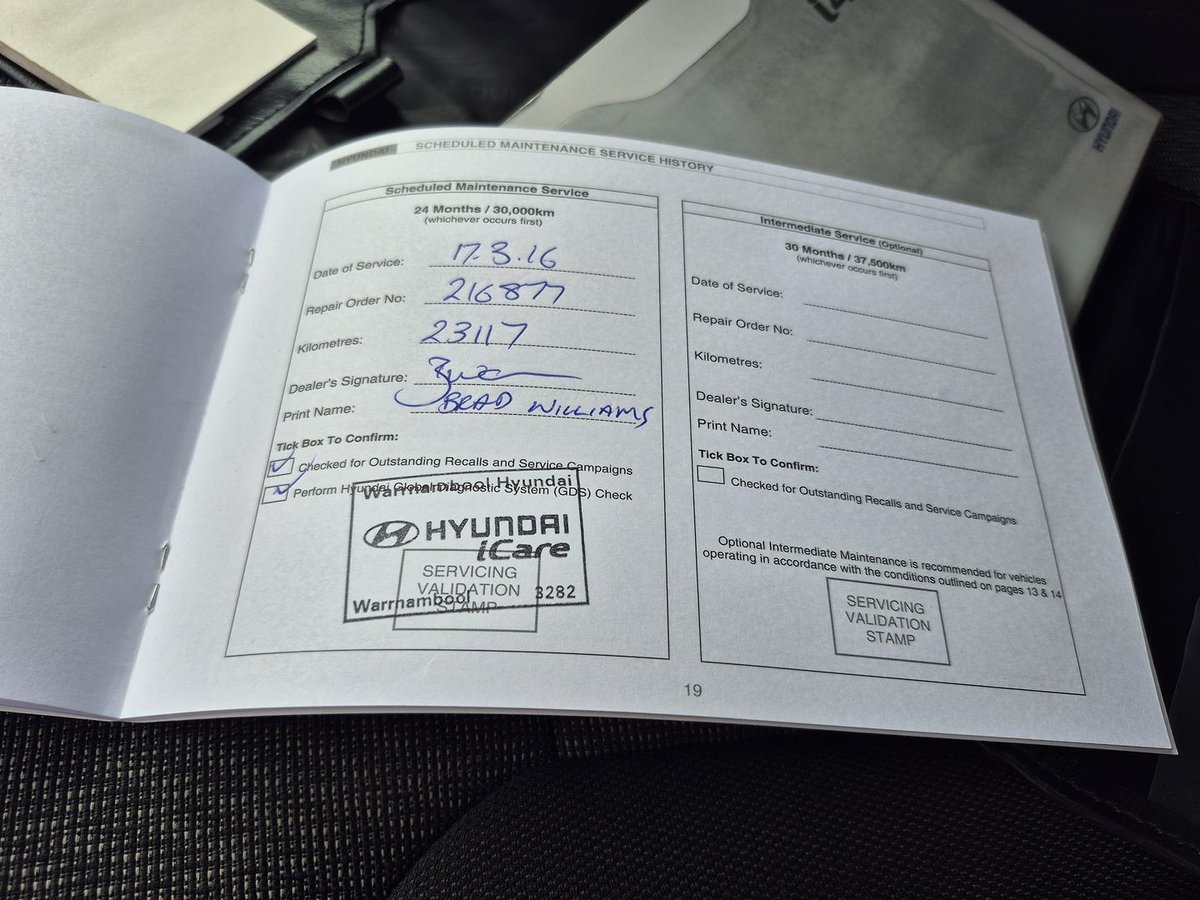 HYUNDAI SCHEDULED MAINTENANCE SERVICE HISTORY
Scheduled Maintenance Service
24 Months / 30,000km
(whichever occurs first)
Date of Service: 17.3.16
Repair Order No: 216877
Kilometres: 23117
Dealer's Signature:
Print Name: BRAD WILLIAMS
Tick Box To Confirm:
Checked for Outstanding Recalls and Service Campaigns
Perform Hyundai Global Diagnostic System (GDS) Check
Warrnambool Hyundai
HYUNDAI
iCare
Warrnambool 3282
SERVICING
VALIDATION
STAMP
Intermediate Service (Optional)
30 Months / 37,500km
(whichever occurs first)
Date of Service:
Repair Order No:
Kilometres:
Dealer's Signature:
Print Name:
Tick Box To Confirm:
Checked for Outstanding Recalls and Service Campaigns
Optional Intermediate Maintenance is recommended for vehicles
operating in accordance with the conditions outlined on pages 13 & 14
SERVICING
VALIDATION
STAMP
19
HYUNDAI